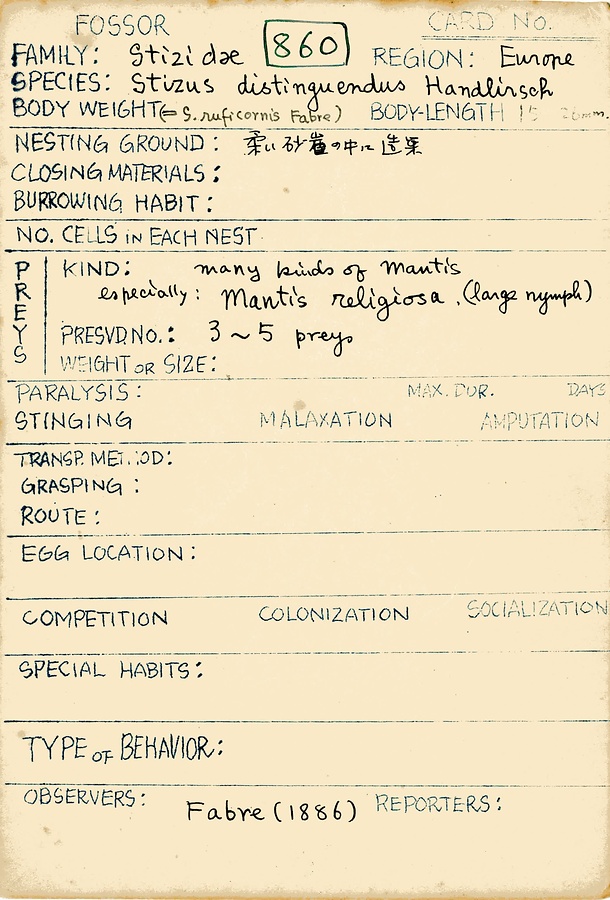 FOSSOR 860 CARD NO.
FAMILY: Stizidae REGION: Europe
SPECIES: Stizus distinguendus Handlirsch
BODY WEIGHT (= S. ruficornis Fabre) BODY-LENGTH 15 26mm.
NESTING GROUND: 柔い砂崖の中に造巣
CLOSING MATERIALS:
BURROWING HABIT:
NO. CELLS in EACH NEST
PREYS
KIND: many kinds of mantis
especially: Mantis religiosa. (large nymph)
PRESVD NO.: 3 ~ 5 preys
WEIGHT or SIZE:
PARALYSIS: MAX. DUR. DAYS
STINGING MALAXATION AMPUTATION
TRANSP. METHOD:
GRASPING:
ROUTE:
EGG LOCATION:
COMPETITION COLONIZATION SOCIALIZATION
SPECIAL HABITS:
TYPE of BEHAVIOR:
OBSERVERS: Fabre (1886) REPORTERS: